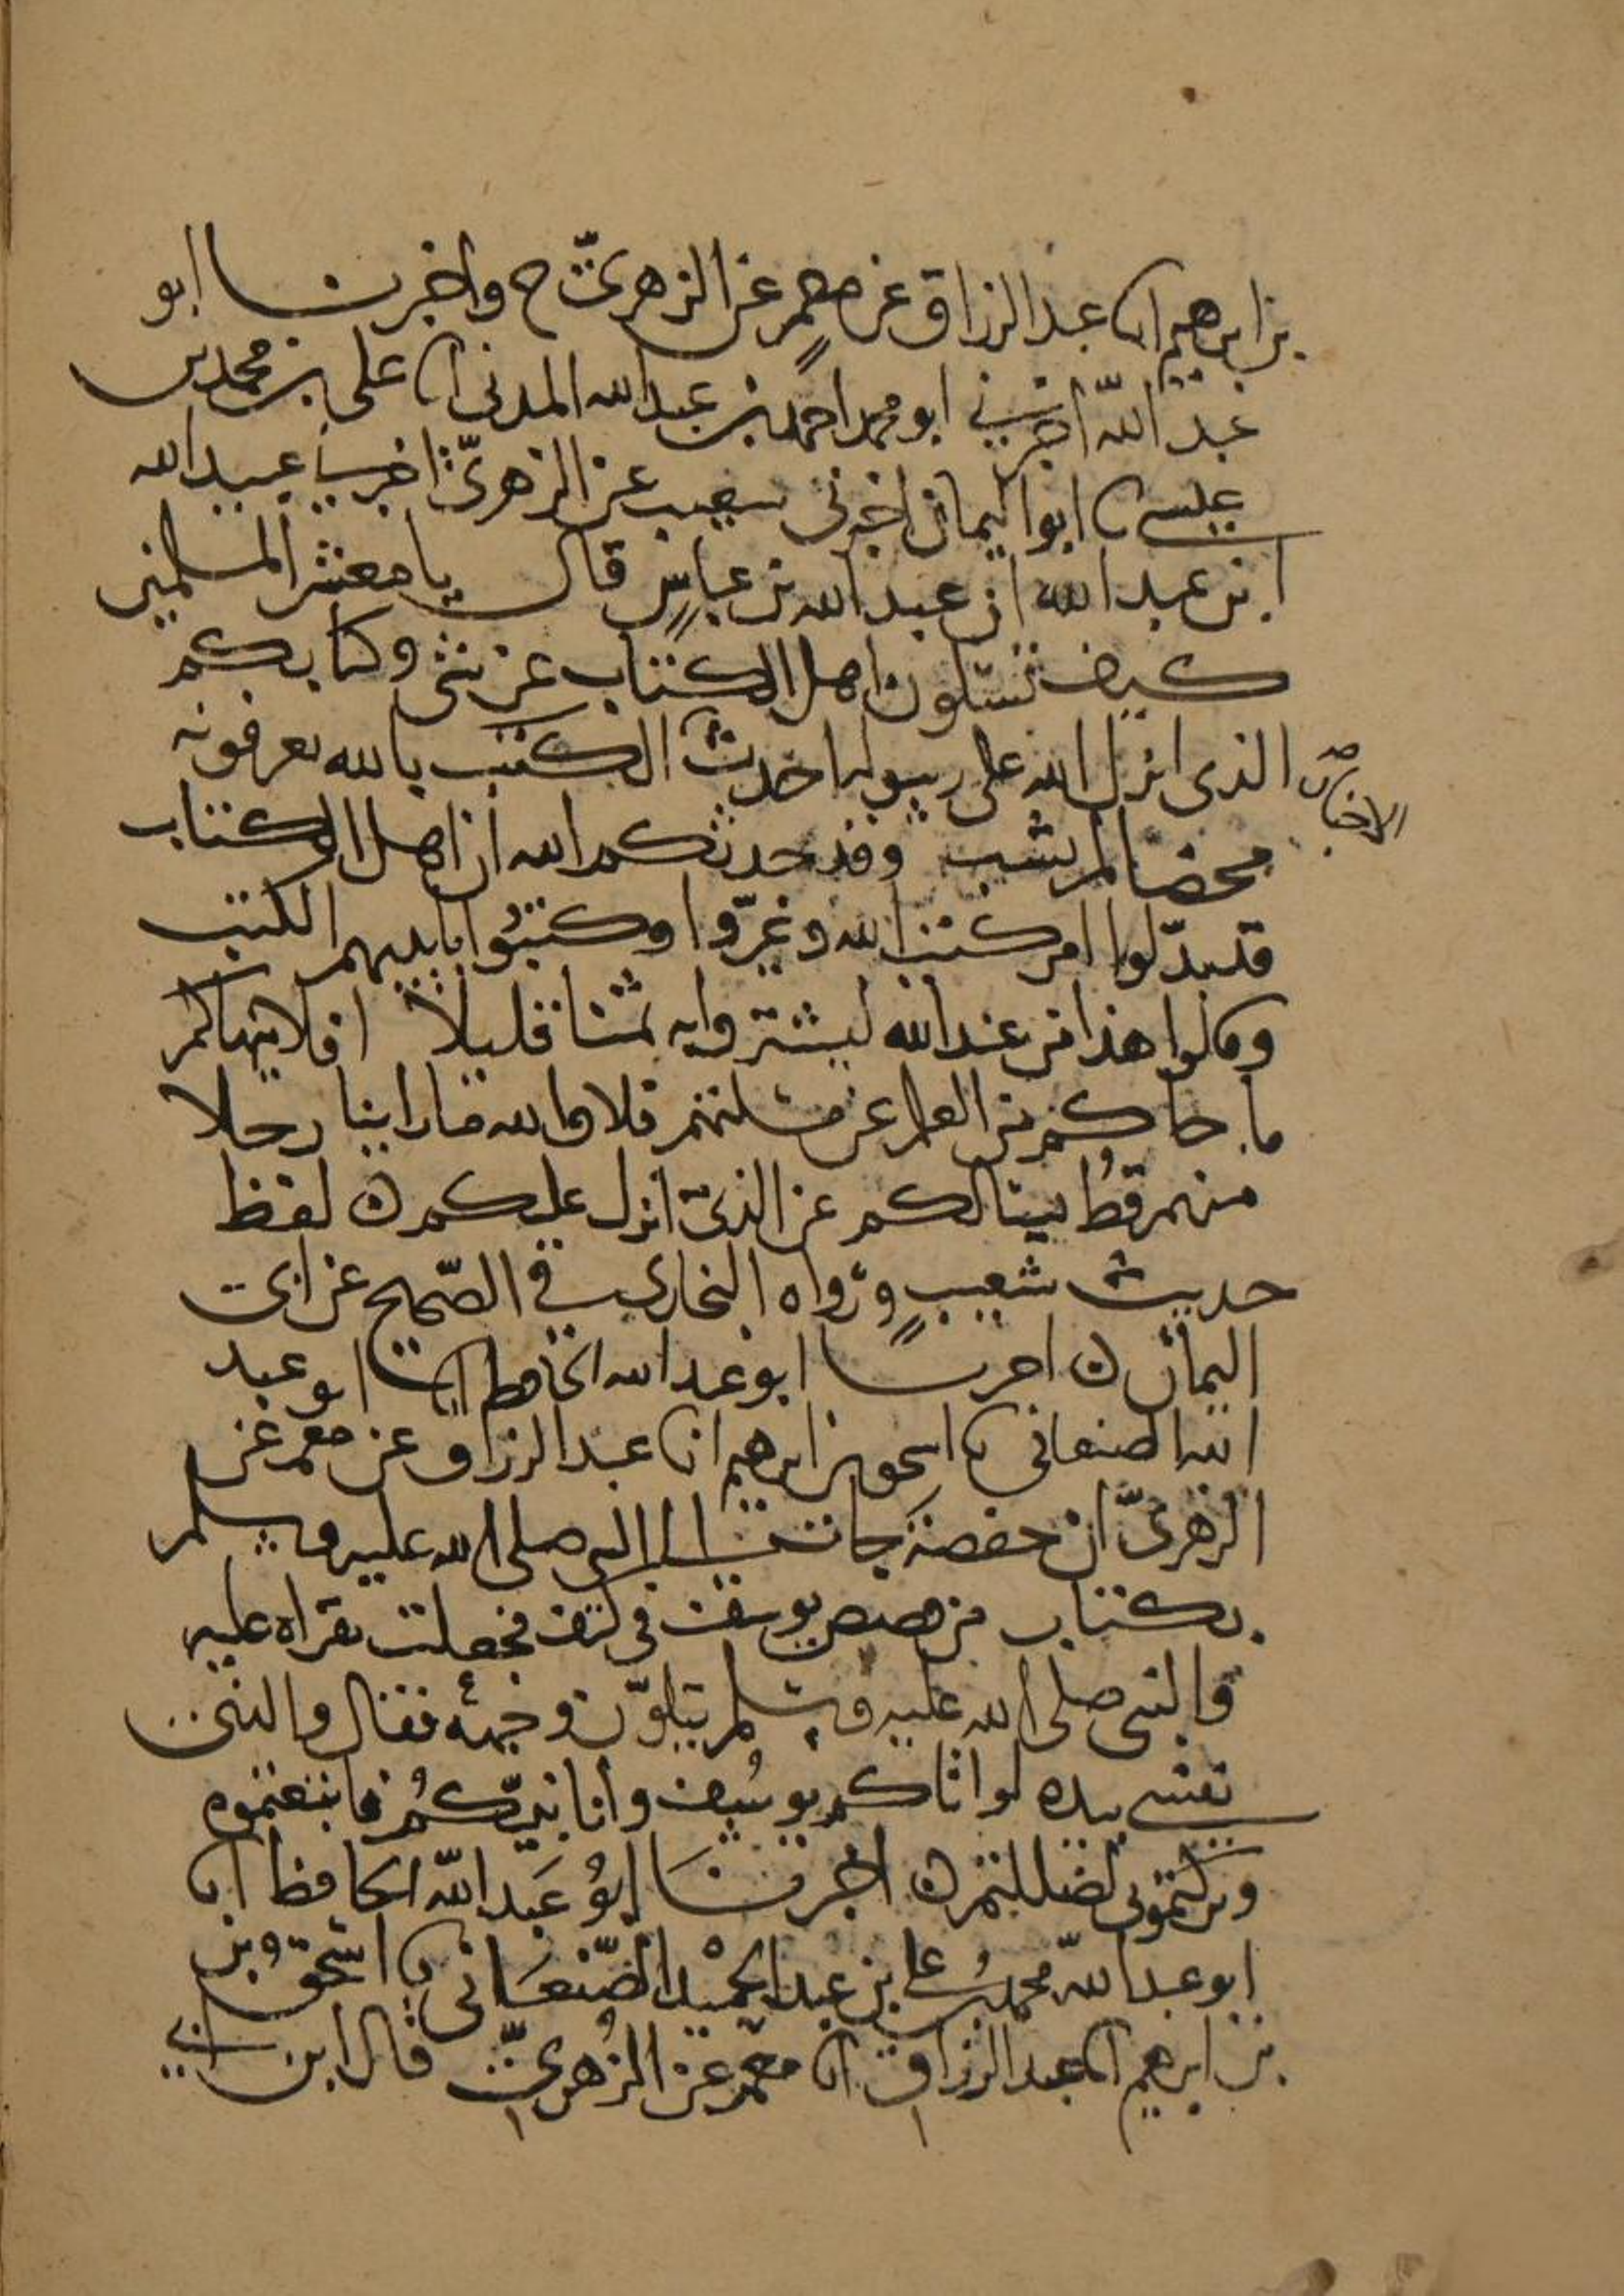 بن ابرهيم انا عبد الرزاق عن معمر عن الزهري ح واخبرنا ابو
عبد الله اخبرني ابو محمد احمد بن عبد الله المدني انا علي بن محمد بن
عيسى نا ابو اليمان اخبرني شعيب عن الزهري اخبرنا عبيد الله
ابن عبد الله ان عبد الله بن عباس قال يا معشر المسلمين
كيف تسئلون اهل الكتاب عن شي وكتابكم
الذي انزل الله على رسوله احدث الكتب بالله تعرفونه
الاخبار صح
محضا لم يشب وقد حدثكم الله ان اهل الكتاب
قد بدلوا امر كتب الله وغيروا وكتبوا بايديهم الكتب
وقالوا هذا من عند الله ليشتروا به ثمنا قليلا افلا ينهاكم
ما جاكم من العلم عن مسئلتهم فلا والله ما راينا رجلا
منهم قط يسالكم عن الذي انزل عليكم ن لفظ
حديث شعيب ورواه البخاري في الصحيح عن ابي
اليمان ن اخبرنا ابو عبد الله الحافظ انا ابو عبد
الله الصنعاني نا اسحق بن ابرهيم انا عبد الرزاق عن معمر عن
الزهري ان حفصة جات الى النبي صلى الله عليه وسلم
بكتاب من قصص يوسف في كتف فجعلت تقراه عليه
والنبي صلى الله عليه وسلم يتلون وجهه فقال والذي
نفسي بيده لو اتاكم يوسف وانا نبيكم فاتبعتموه
وتركتموني لضللتم ن اخبرنا ابو عبد الله الحافظ انا
ابو عبد الله محمد بن علي بن عبد الحميد الصنعاني نا اسحق بن
بن ابرهيم انا عبد الرزاق انا معمر عن الزهري قال ابن ابي